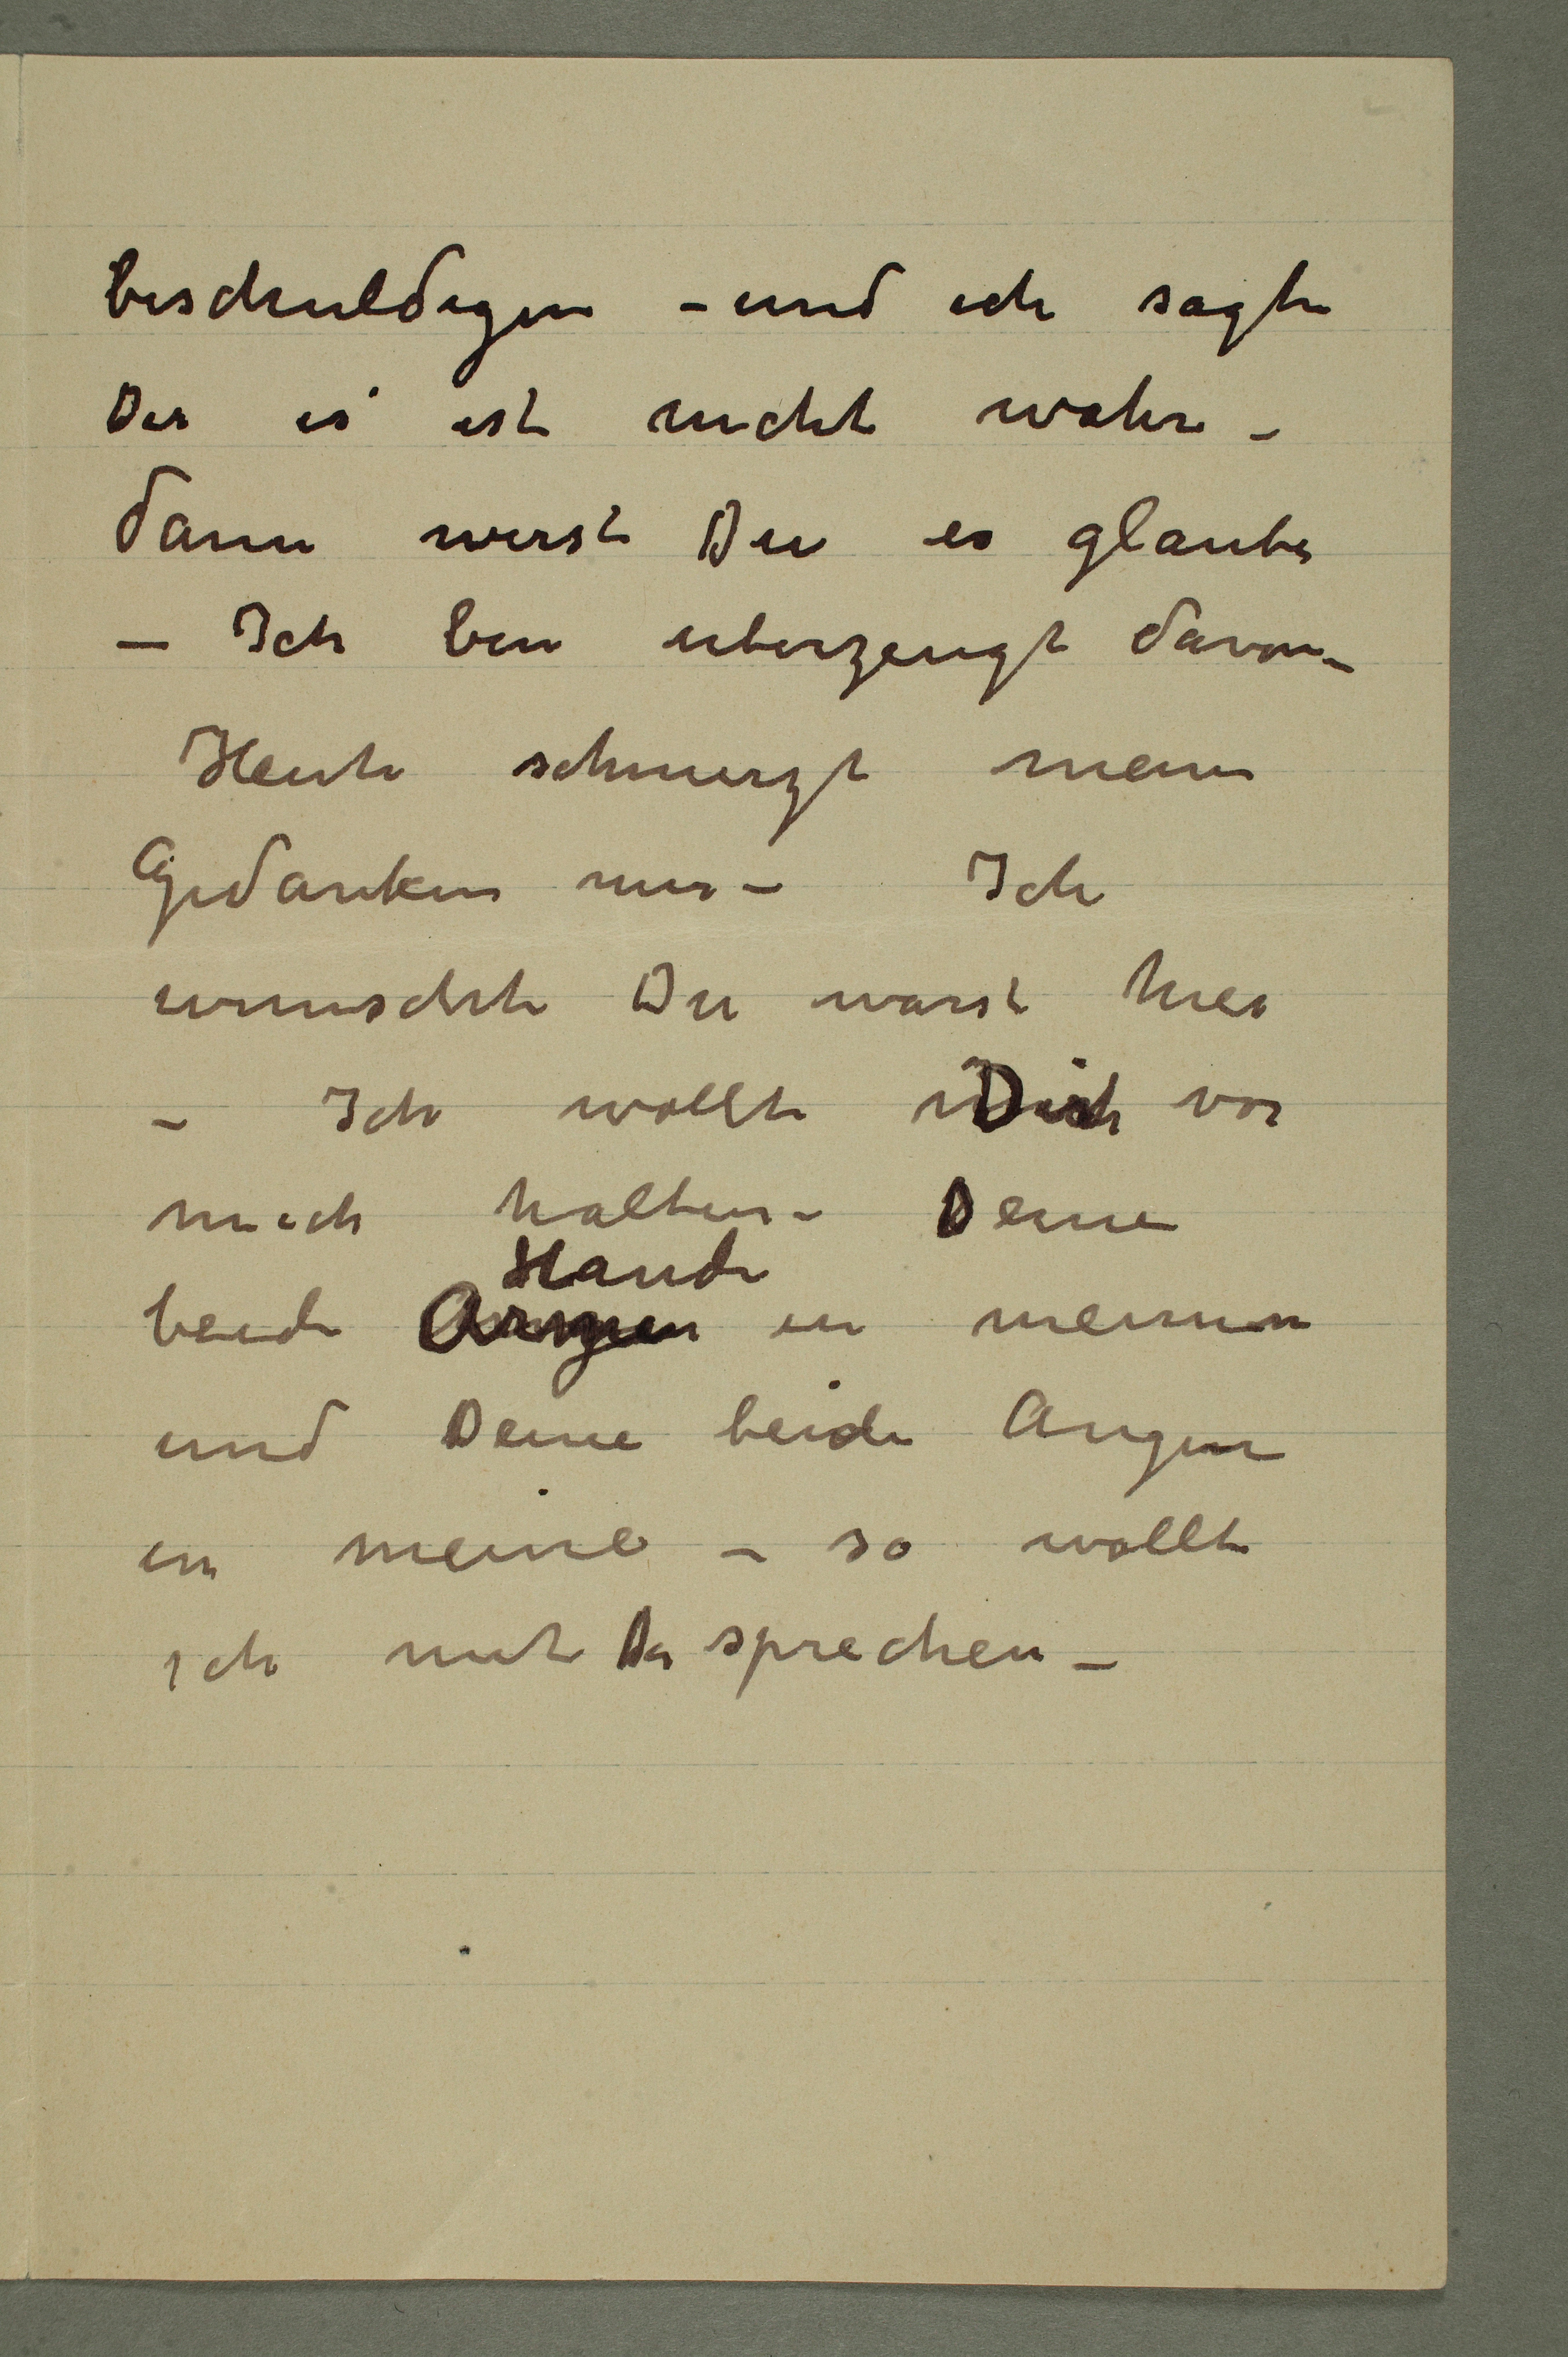 beschuldigen – und ich sagte
Dir es ist nicht wahr –
dann wirst Du es glauben
– Ich bin uberzeugt davon –
Heute schmerzt meine
Gedanken mir – Ich
wunschte Du warst hier
– Ich wollte Dich vor
mich halten – Deine
Hande
beide in meinen
und Deine beide Augen
in meine – so wollte
ich mit Dir sprechen –